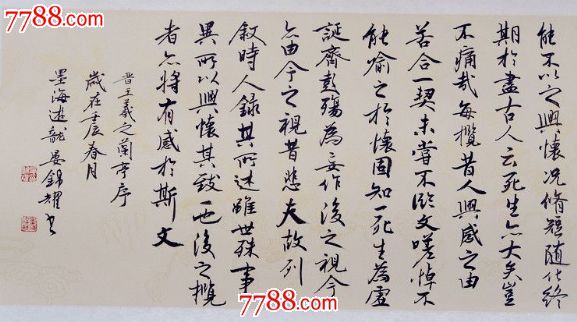 7788.com
7788.com
能不以之興懷況脩短隨化終
期於盡古人云死生亦大矣豈
不痛哉每攬昔人興感之由
若合一契未嘗不臨文嗟悼不
能喻之於懷固知一死生為虛
誕齊彭殤為妄作後之視今
亦由今之視昔悲夫故列
敘時人錄其所述雖世殊事
異所以興懷其致一也後之攬
者亦將有感於斯文
晉王羲之蘭亭序
歲在壬辰春月
墨海遊龍錦耀书
7788.com
7788.com